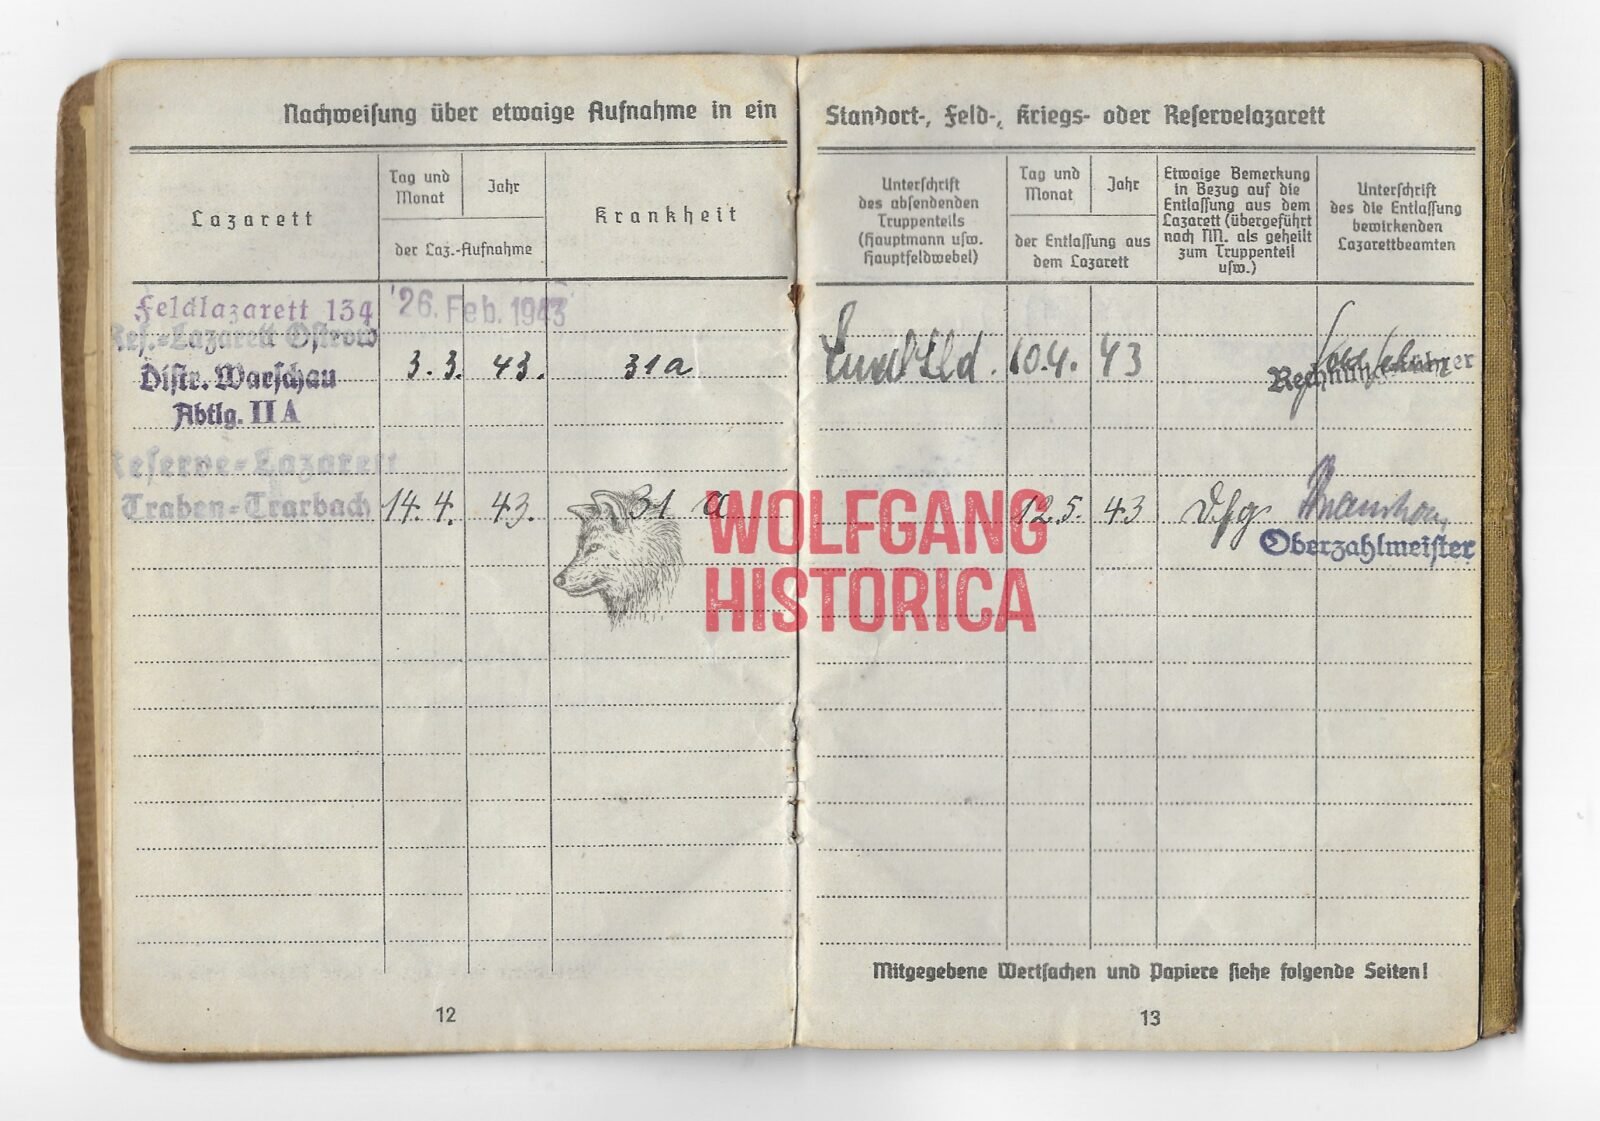 Nachweisung über etwaige Aufnahme in ein
Standort-, Feld-, Kriegs- oder Reservelazarett
Lazarett
Tag und
Monat
Jahr
der Laz.-Aufnahme
Krankheit
Unterschrift
des absendenden
Truppenteils
(Hauptmann usw.
Hauptfeldwebel)
Tag und
Monat
Jahr
der Entlassung aus
dem Lazarett
Etwaige Bemerkung
in Bezug auf die
Entlassung aus dem
Lazarett (übergeführt
nach M. als geheilt
zum Truppenteil
usw.)
Unterschrift
des die Entlassung
bewirkenden
Lazarettbeamten
Feldlazarett 134 26. Feb. 1943
Res.-Lazarett Ostrow
Distr. Warschau 3.3. 43. 31a 10.4. 43
Abtlg. II A
Reserve-Lazarett
Traben-Trarbach 14.4. 43. 31 a 12.5. 43
Oberzahlmeister
WOLFGANG
HISTORICA
Mitgegebene Wertsachen und Papiere siehe folgende Seiten!
12
13